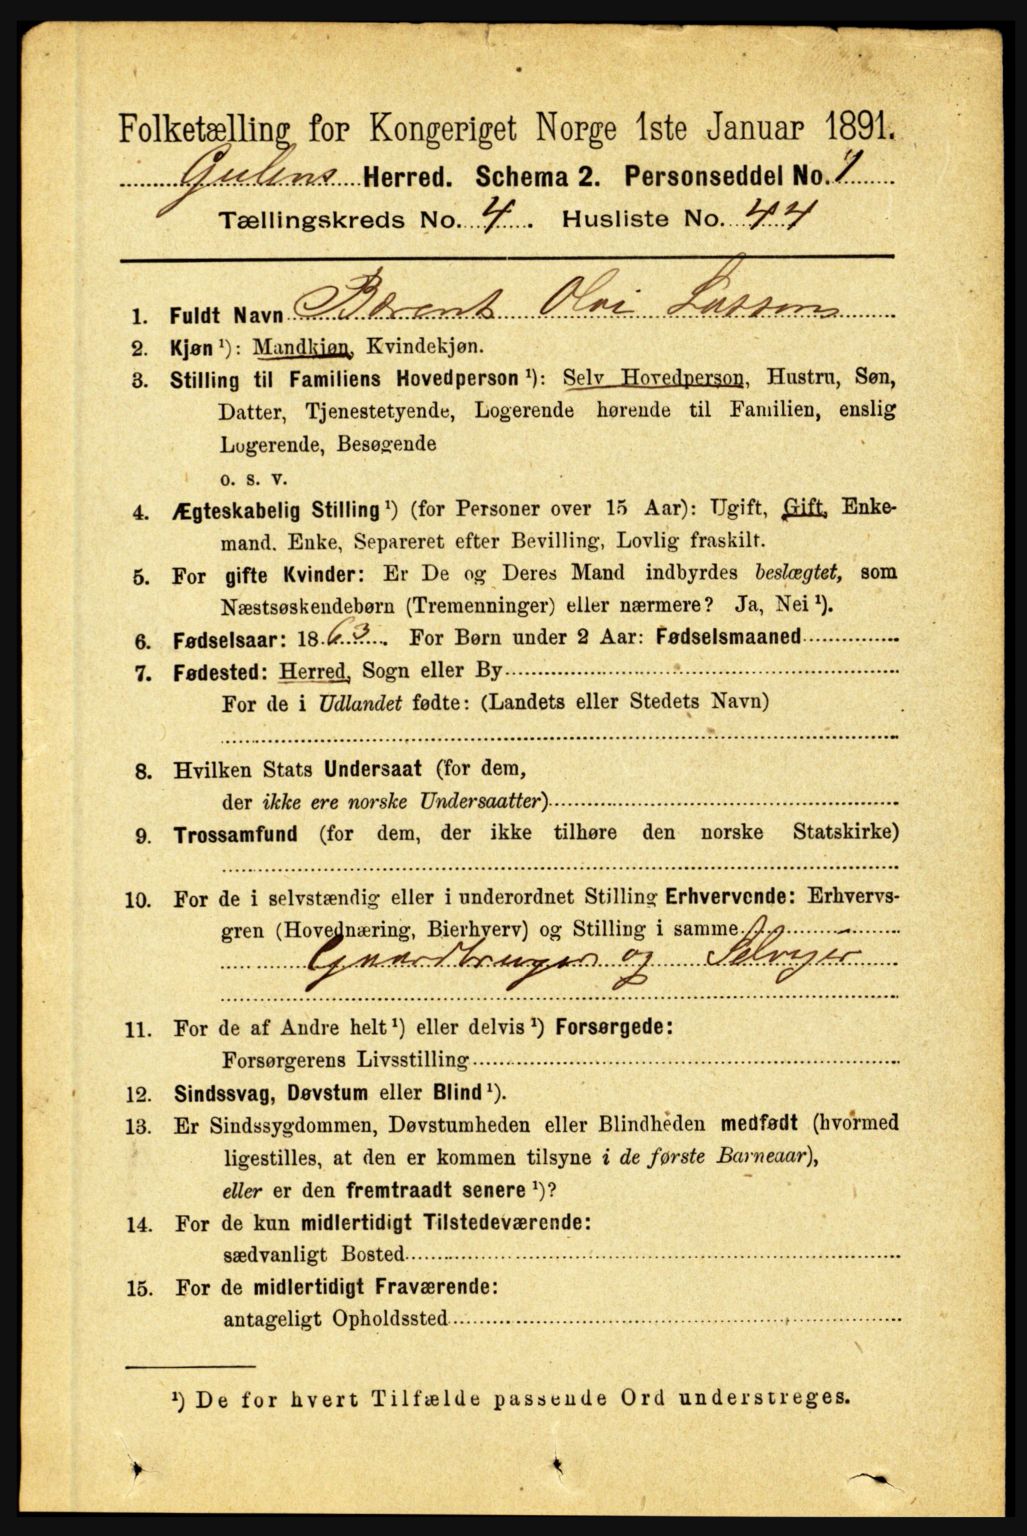 Folketælling for Kongeriget Norge 1ste Januar 1891.
Gulens Herred. Schema 2. Personseddel No. 1
Tællingskreds No. 4. Husliste No. 44
1. Fuldt Navn Bærent Olai Lassen
2. Kjøn ¹): Mandkjøn, Kvindekjøn.
3. Stilling til Familiens Hovedperson ¹): Selv Hovedperson, Hustru, Søn,
Datter, Tjenestetyende, Logerende hørende til Familien, enslig
Logerende, Besøgende
o. s. v.
4. Ægteskabelig Stilling ¹) (for Personer over 15 Aar): Ugift, Gift, Enke-
mand. Enke, Separeret efter Bevilling, Lovlig fraskilt.
5. For gifte Kvinder: Er De og Deres Mand indbyrdes beslægtet, som
Næstsøskendebørn (Tremenninger) eller nærmere? Ja, Nei ¹).
6. Fødselsaar: 1863. For Børn under 2 Aar: Fødselsmaaned
7. Fødested: Herred, Sogn eller By
For de i Udlandet fødte: (Landets eller Stedets Navn)
8. Hvilken Stats Undersaat (for dem,
der ikke ere norske Undersaatter)
9. Trossamfund (for dem, der ikke tilhøre den norske Statskirke)
10. For de i selvstændig eller i underordnet Stilling Erhvervende: Erhvervs-
gren (Hovednæring, Bierhverv) og Stilling i samme
Gaardbruger og Selveier
11. For de af Andre helt ¹) eller delvis ¹) Forsørgede:
Forsørgerens Livsstilling
12. Sindssvag, Døvstum eller Blind ¹).
13. Er Sindssygdommen, Døvstumheden eller Blindheden medfødt (hvormed
ligestilles, at den er kommen tilsyne i de første Barneaar),
eller er den fremtraadt senere ¹)?
14. For de kun midlertidigt Tilstedeværende:
sædvanligt Bosted
15. For de midlertidigt Fraværende:
antageligt Opholdssted
¹) De for hvert Tilfælde passende Ord understreges.